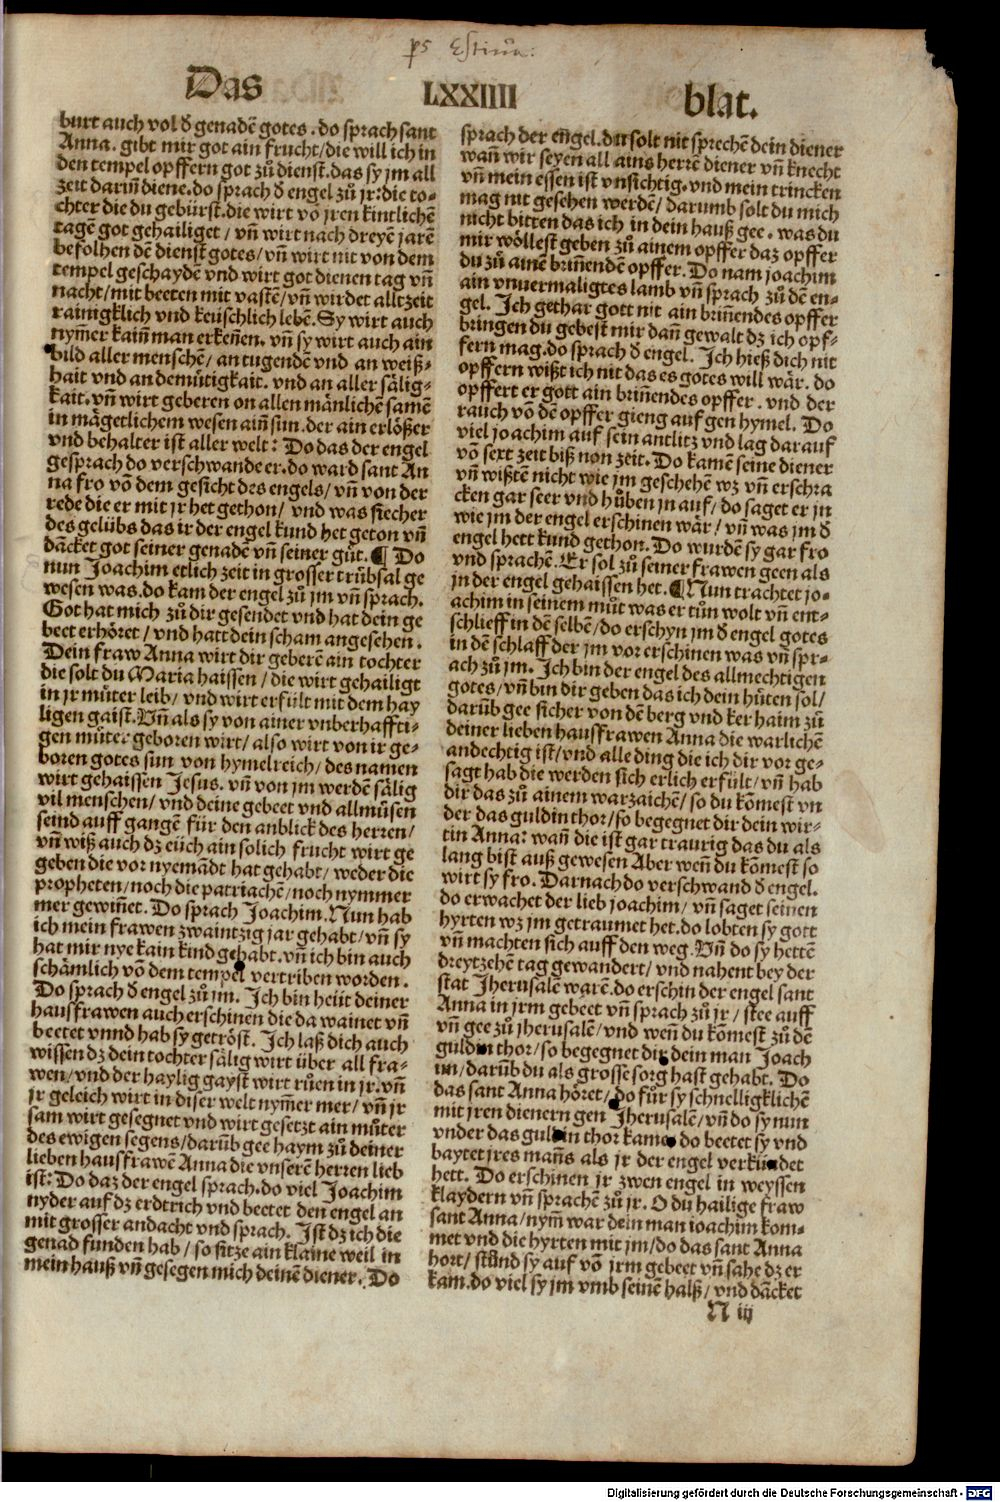 Das LXXIIII blat.
burt auch vol d̕ genadē gotes . do sprach sant
Anna . gibt mir got ain frucht/ die will ich in
den tempel opffern got zů dienst. das sy jm all
zeit dariñ diene. do sprach d̕ engel zů jr: die to-
chter die du gebürst. die wirt vō jren kintlichē
tagē got gehailiget / vñ wirt nach dreyē jarē
befolhen dē dienst gotes/ vñ wirt nit von dem
tempel geschaydē vnd wirt got dienen tag vñ
nacht/ mit beeten mit vastē/ vñ wirdet alltzeit
rainigklich vnd keüschlich lebē. Sy wirt auch
nym̄er kaiñ man erkeñen. vñ sy wirt auch ain
bild aller menschē/ an tugendē vnd an weiß-
hait vnd an demütigkait. vnd an aller sälig-
kait. vñ wirt geberen on allen mänlichē samē
in mägetlichem wesen aiñ sun. der ain erlößer
vnd behalter ist aller welt: Do das der engel
gesprach do verschwande er. do ward sant An
na fro vō dem gesicht des engels/ vñ von der
rede die er mit jr het gethon/ vnd was siecher
des gelübs das ir der engel kund het geton vñ
dācket got seiner genadē vñ seiner güt. ¶ Do
nun Joachim etlich zeit in grosser trübsal ge
wesen was. do kam der engel zů jm vñ sprach.
Got hat mich zů dir gesendet vnd hat dein ge
beet erhöret / vnd hatt dein scham angesehen.
Dein fraw Anna wirt dir geberē ain tochter
die solt du Maria haissen / die wirt gehailigt
in jr můter leib/ vnd wirt erfült mit dem hay
ligen gaist. Vñ als sy von ainer vnberhaffti-
gen můter geboren wirt/ also wirt von ir ge-
boren gotes sun von hymelreich/ des namen
wirt gehaissen Jesus. vñ von jm werdē sälig
vil menschen/ vnd deine gebeet vnd allmůsen
seind auff gangē für den anblick des herren/
vñ wiß auch dz eüch ain solich frucht wirt ge
geben die vor nyemādt hat gehabt/ weder die
propheten/ noch die patriachē/ noch nymmer
mer gewiñet. Do sprach Joachim. Nun hab
ich mein frawen zwaintzig jar gehabt/ vñ sy
hat mir nye kain kind gehabt. vñ ich bin auch
schämlich vō dem tempel vertriben worden.
Do sprach d̕ engel zů jm. Ich bin heüt deiner
haußfrawen auch erschinen die da wainet vñ
beetet vnnd hab sy getröst. Ich laß dich auch
wissen dz dein tochter sälig wirt über all fra-
wen/ vnd der haylig gayst wirt růen in jr. vñ
jr geleich wirt in diser welt nym̄er mer/ vñ jr
sam wirt gesegnet vnd wirt gesetzt ain můter
des ewigen segens/ darüb gee haym zů deiner
lieben haußfrawē Anna die vnserē herren lieb
ist: Do daz der engel sprach. do viel Joachim
nyder auf dz erdtrich vnd beetet den engel an
mit grosser andacht vnd sprach. Ist dz ich die
genad funden hab/ so sitze ain klaine weil in
mein hauß vñ gesegen mich deinē diener. Do
sprach der eñgel. du solt nit sprechē dein diener
wañ wir seyen all ains herrē diener vñ knecht
vñ mein essen ist vnsichtig. vnd mein trincken
mag nit gesehen werdē/ darumb solt du mich
nicht bitten das ich in dein hauß gee. was du
mir wöllest geben zů ainem opffer daz opffer
du zů ainē briñendē opffer. Do nam joachim
ain vnuermaligtes lamb vñ sprach zů dē en-
gel. Ich gethar gott nit ain briñendes opffer
bringen du gebest mir dañ gewalt dz ich opf-
fern mag. do sprach d̕ engel. Ich hieß dich nit
opffern wißt ich nit das es gotes will wär. do
opffert er gott ain briñendes opffer. vnd der
rauch vō dē opffer gieng auf gen hymel. Do
viel joachim auf sein antlitz vnd lag darauf
vō sext zeit biß non zeit. Do kamē seine diener
vñ wißtē nicht wie jm geschehē wz vñ erschra
cken gar seer vnd hůben jn auf/ do saget er jn
wie jm der engel erschinen wär/ vñ was jm d̕
engel hett kund gethon. Do wurdē sy gar fro
vnd sprachē. Er sol zů seiner frawen geen als
jn der engel gehaissen het. ¶ Nun trachtet jo-
achim in seinem můt was er tůn wolt vñ ent-
schlieff in dē selbē/ do erschyn jm d̕ engel gotes
in dē schlaff der jm vor erschinen was vñ spr-
ach zů jm. Ich bin der engel des allmechtigen
gotes/ vñ bin dir geben das ich dein hüten sol/
darüb gee sicher von dē berg vnd ker haim zů
deiner lieben haußfrawen Anna die warlichē
andechtig ist/ vnd alle ding die ich dir vor ge-
sagt hab die werden sich erlich erfült/ vñ hab
dir das zů ainem warzaichē/ so du kōmest vn
der das guldin thor/ so begegnet dir dein wir-
tin Anna: wañ die ist gar traurig das du als
lang bist auß gewesen Aber weñ du kōmest so
wirt sy fro. Darnach do verschwand d̕ engel.
do erwachet der lieb joachim/ vñ saget seinen
hyrten wz jm getraumet het. do lobten sy gott
vñ machten sich auff den weg. Vñ do sy hettē
dreytzehē tag gewandert/ vnd nahent bey der
stat Jherusalē warē. do erschin der engel sant
Anna in jrm gebeet vñ sprach zů jr / stee auff
vñ gee zů jherusalē/ vnd weñ du kōmest zů dē
guldin thor/ so begegnet dir dein man Joach
im/ darüb du als grosse sorg hast gehabt. Do
das sant Anna höret/ do fůr sy schnelligklichē
mit jren dienern gen Jherusalē/ vñ do sy nun
vnder das guldin thor kamē do beetet sy vnd
baytet jres mañs als jr der engel verkündet
hett. Do erschinen jr zwen engel in weyssen
klaydern vñ sprachē zů jr. O du hailige fraw
sant Anna/ nym̄ war dein man ioachim kom-
met vnd die hyrten mit jm/ do das sant Anna
hort/ stůnd sy auf vō jrm gebeet vñ sahe dz er
kam. do viel sy jm vmb seinē halß/ vnd dācket
N iij
Digitalisierung gefördert durch die Deutsche Forschungsgemeinschaft - DFG